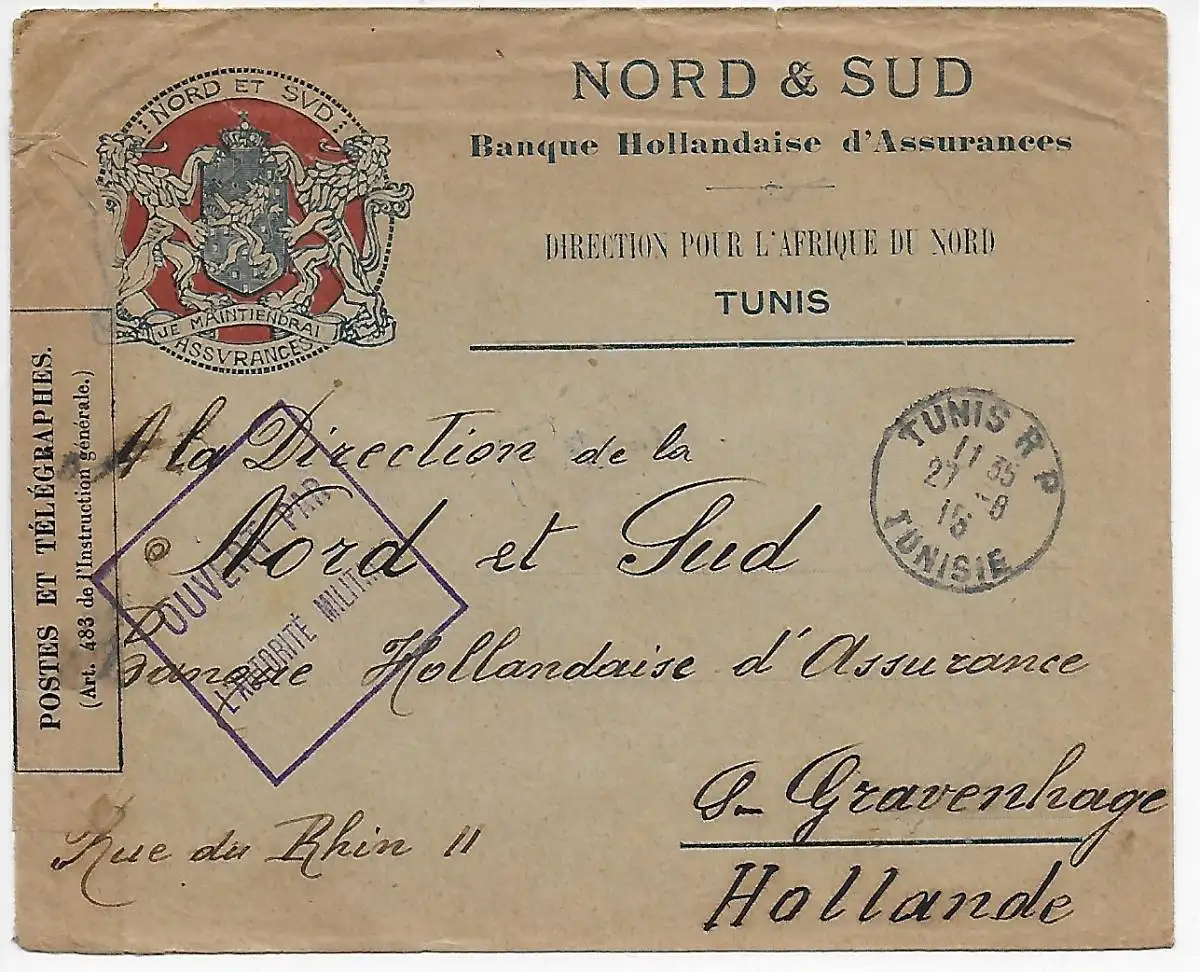 NORD ET SVD
JE MAINTIENDRAI
ASSVRANCES
NORD & SUD
Banque Hollandaise d'Assurances
DIRECTION POUR L'AFRIQUE DU NORD
TUNIS
POSTES ET TÉLÉGRAPHES.
(Art. 483 de l'Instruction générale.)
OUVERT PAR
L'AUTORITÉ
TUNIS R P
11 35
27 -8
15
TUNISIE
A la Direction de la
Nord et Sud
Banque Hollandaise d'Assurance
S- Gravenhage
Rue du Rhin 11
Hollande